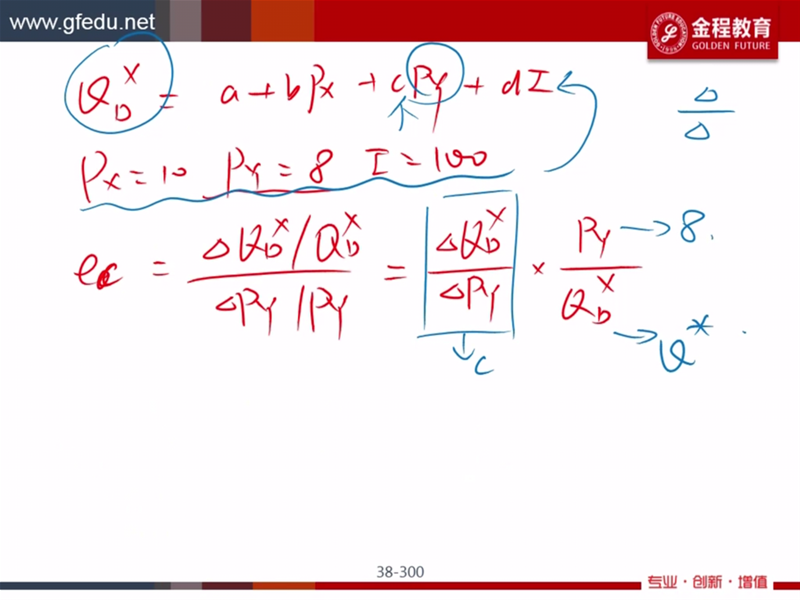 www.gfedu.net
金程教育
GOLDEN FUTURE
Q_D^X = a + bPx + cPy + dI
Δ/Δ
Px = 10 Py = 8 I = 100
ec = (ΔQ_D^X / Q_D^X) / (ΔPy / Py) = ΔQ_D^X / ΔPy × Py / Q_D^X
→ 8.
→ Q*
↓ c
38-300
专业·创新·增值